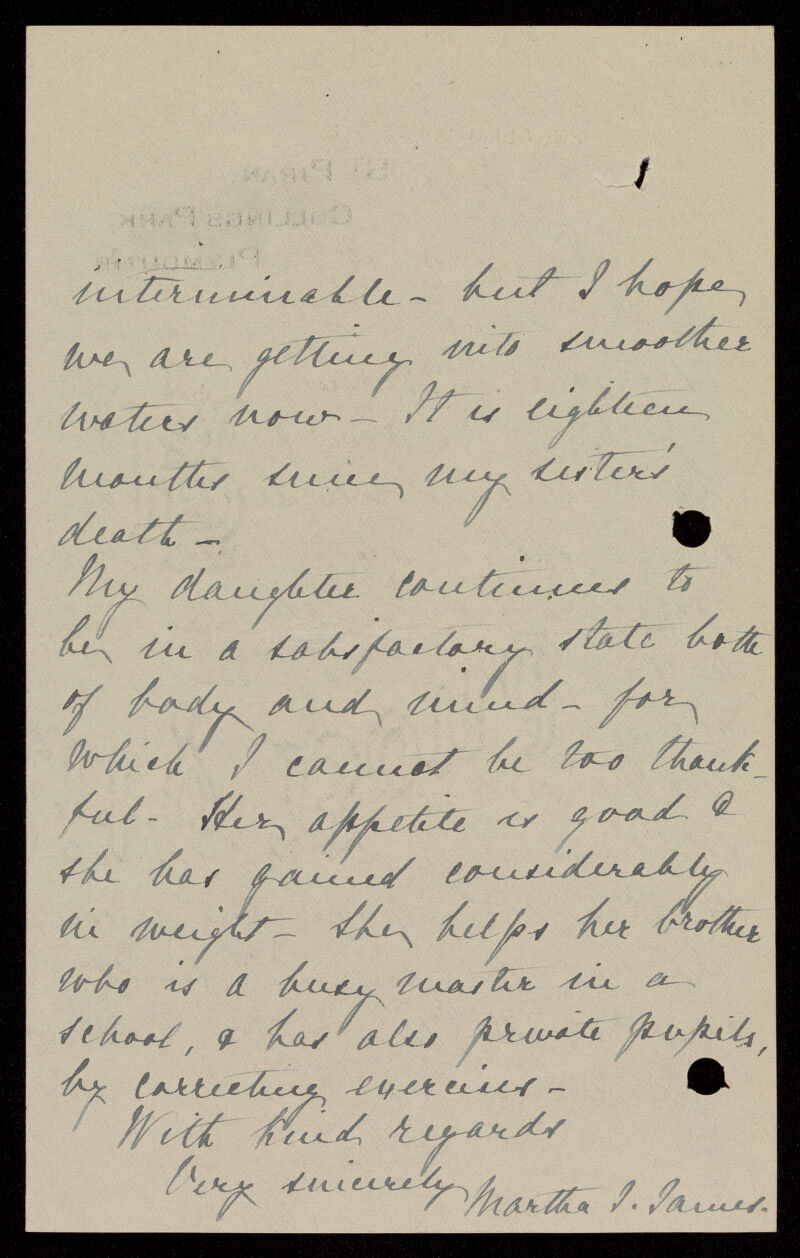 St PIRAN,
COLLINGS PARK
PLYMOUTH
interminable - but I hope
we are getting into smoother
waters now - It is eighteen
months since my sister's
death -
My daughter continues to
be in a satisfactory state both
of body and mind - for
which I cannot be too thank-
ful - Her appetite is good &
she has gained considerably
in weight - She helps her brother
who is a busy master in a
school, & has also private pupils,
by correcting exercises -
With kind regards
Very sincerely
Martha J. James.